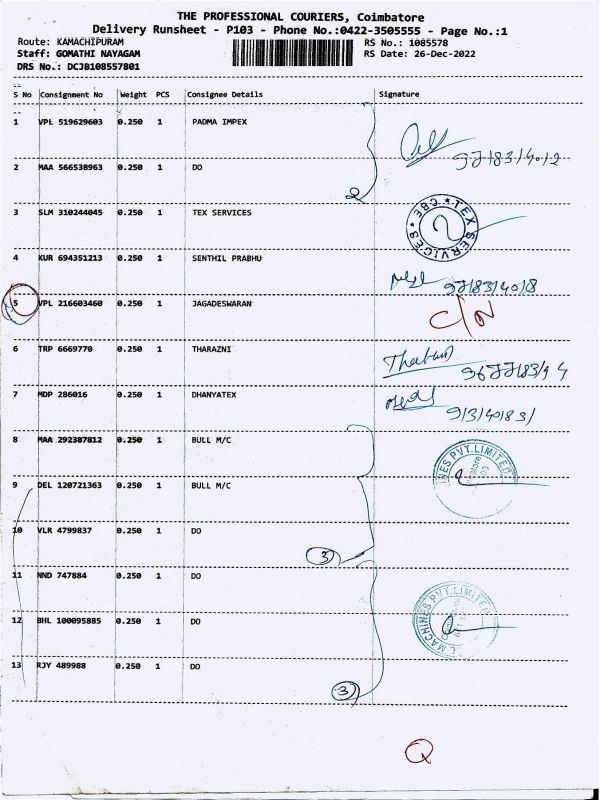 THE PROFESSIONAL COURIERS, Coimbatore
Delivery Runsheet - P103 - Phone No.:0422-3505555 - Page No.:1
Route: KAMACHIPURAM RS No.: 1085578
Staff: GOMATHI NAYAGAM RS Date: 26-Dec-2022
DRS No.: DCJB108557801
S No Consignment No Weight PCS Consignee Details Signature
1 VPL 519629603 0.250 1 PADMA IMPEX
2 MAA 566538963 0.250 1 DO
2
3 SLM 310244045 0.250 1 TEX SERVICES
TEX SERVICES * CBE *
4 KUR 694351213 0.250 1 SENTHIL PRABHU
5 VPL 216603460 0.250 1 JAGADESWARAN
C/N
6 TRP 6669770 0.250 1 THARAZNI
7 MDP 286016 0.250 1 DHANYATEX
8 MAA 292387812 0.250 1 BULL M/C
PVT.LIMITED
9 DEL 120721363 0.250 1 BULL M/C
10 VLR 4799837 0.250 1 DO
3
11 NND 747884 0.250 1 DO
12 BHL 100095885 0.250 1 DO
MACHINES PVT.LIMITED
13 RJY 489988 0.250 1 DO
3
Q